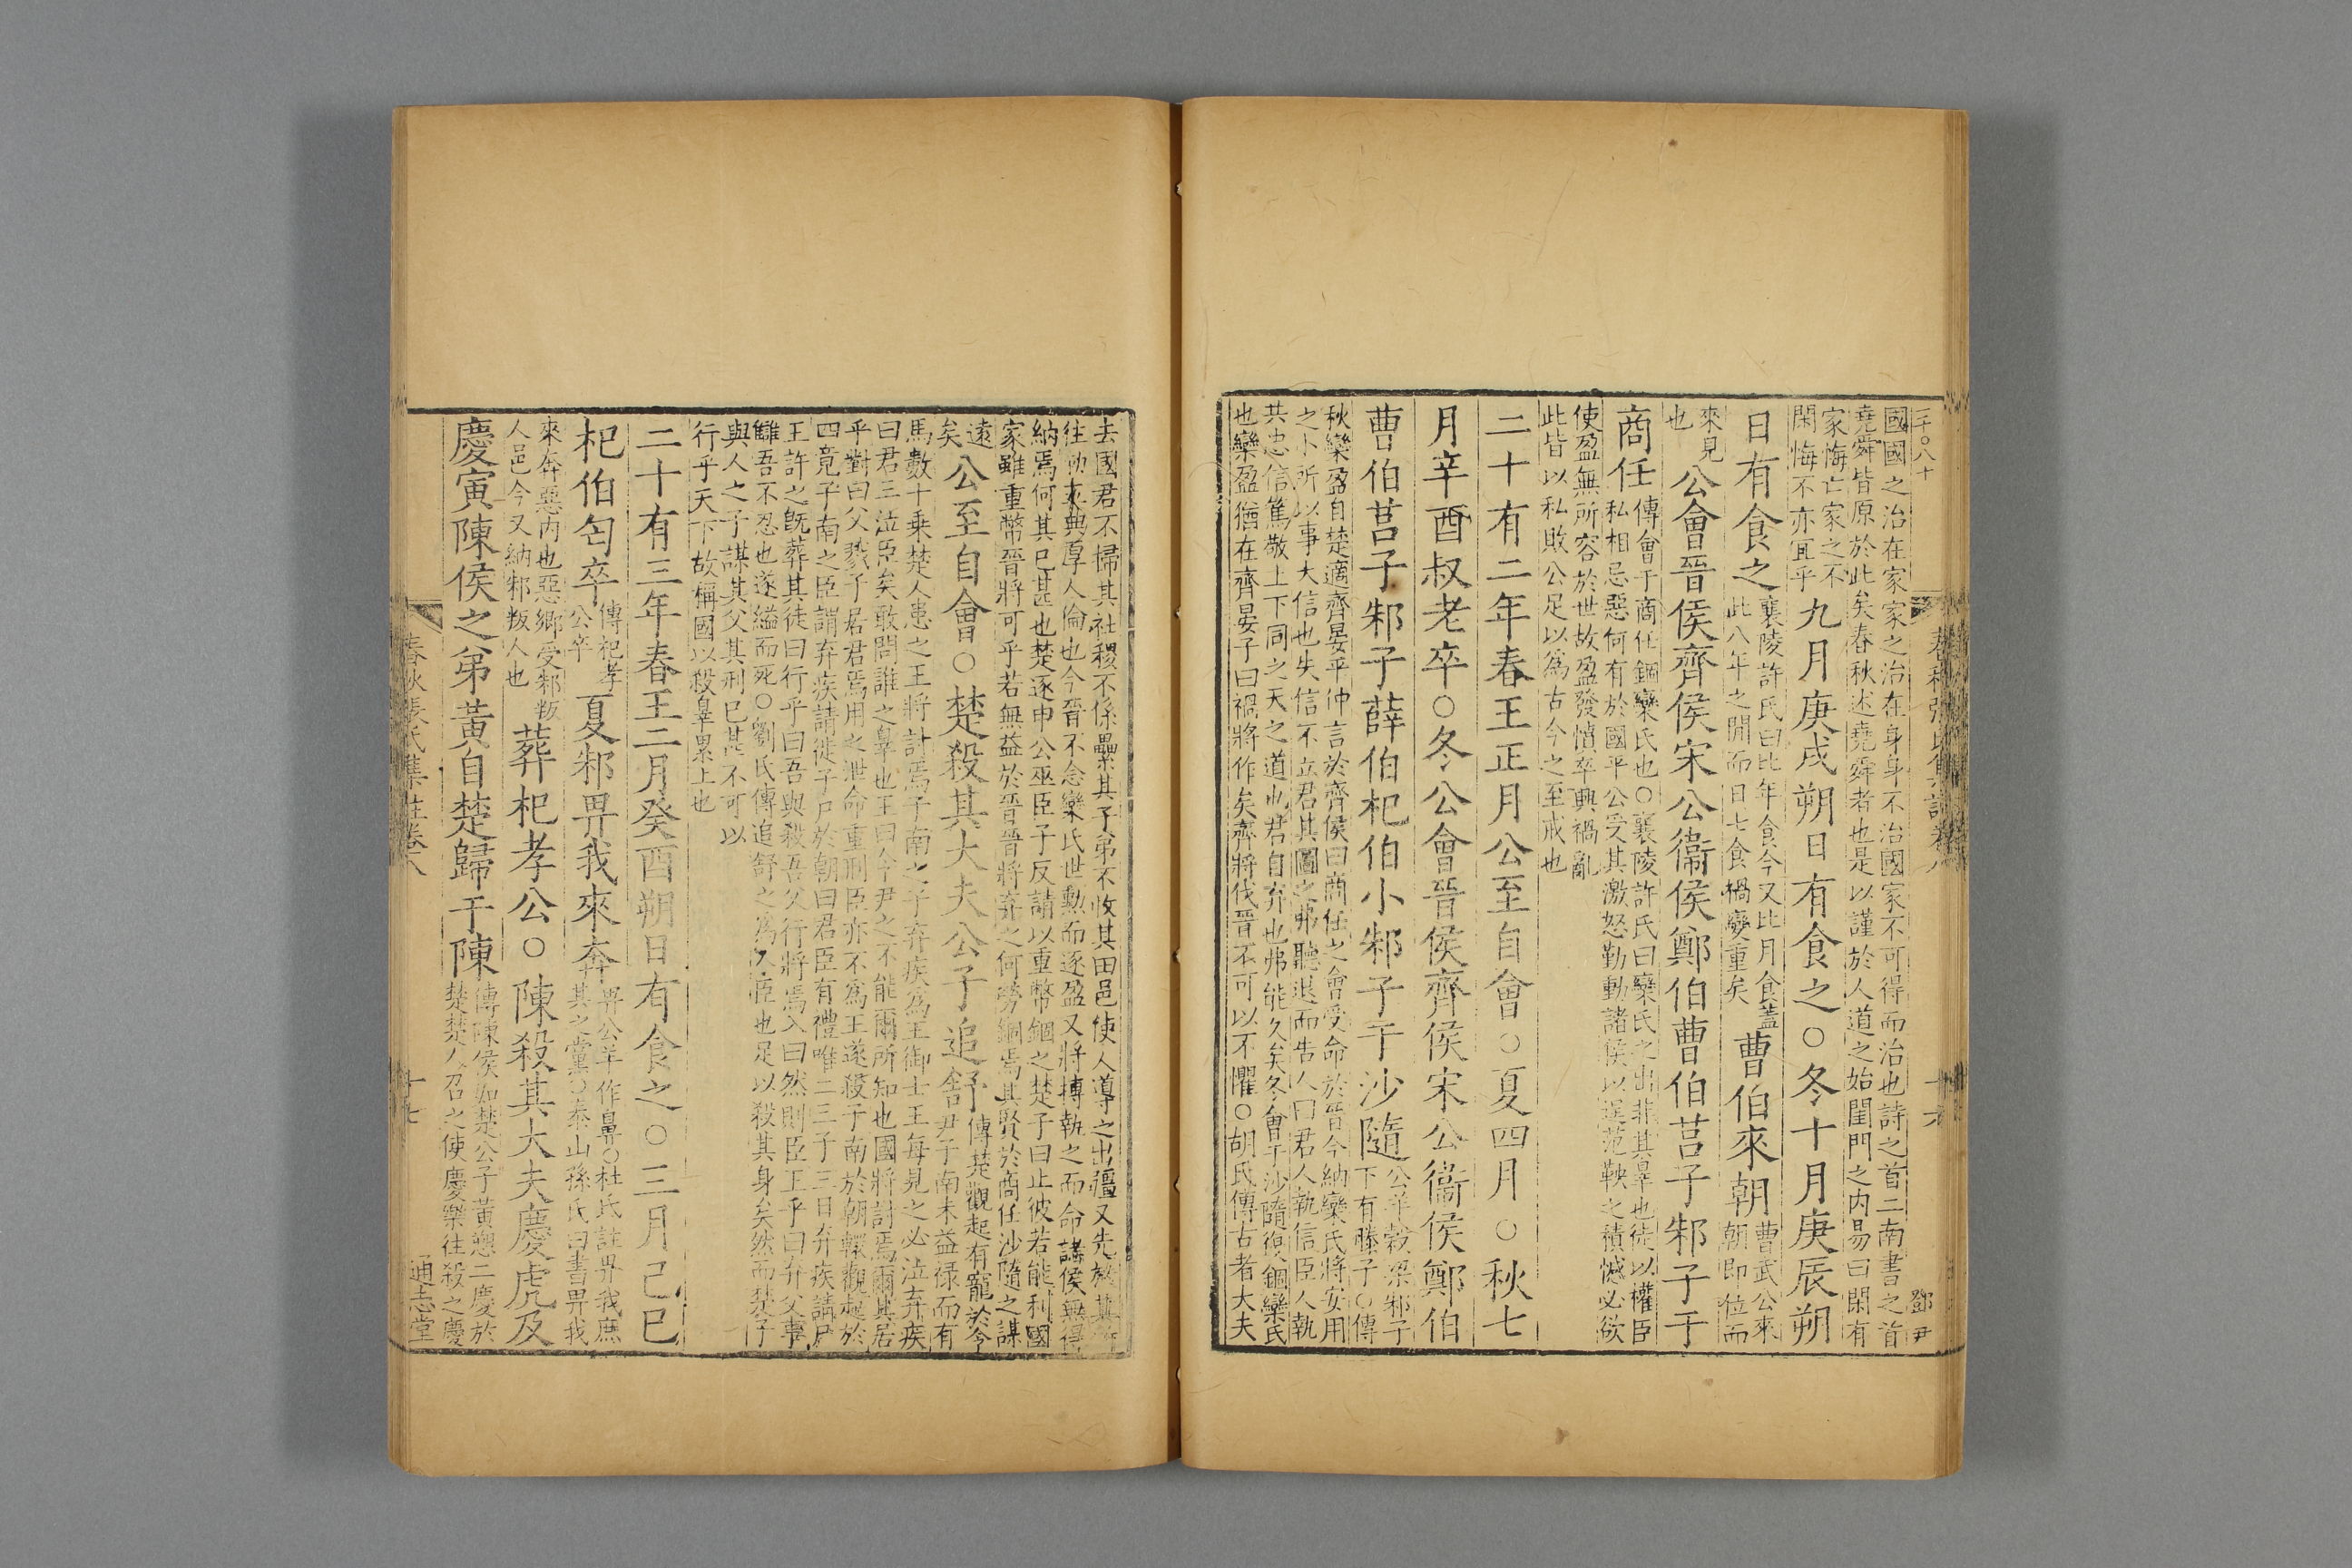 國國之治在家家之治在身身不治國家不可得而治也詩之首二南書之首
堯舜皆原於此矣春秋述堯舜者也是以謹於人道之始閨門之内易曰閑有
家悔亡家之不
閑悔不亦宜乎
九月庚戌朔日有食之○冬十月庚辰朔
日有食之
襄陵許氏曰比年食今又比月食蓋
此八年之閒而日七食禍變重矣
曹伯來朝
曹武公來
朝即位而
來見
也
公會晉侯齊侯宋公衞侯鄭伯曹伯莒子邾子于
商任
傳會于商任錮欒氏也○襄陵許氏曰欒氏之出非其辠也徒以權臣
私相忌惡何有於國平公受其激怒勤動諸侯以逞范鞅之積憾必欲
使盈無所容於世故盈發憤卒興禍亂
此皆以私敗公足以爲古今之至戒也
二十有二年春王正月公至自會○夏四月○秋七
月辛酉叔老卒○冬公會晉侯齊侯宋公衞侯鄭伯
曹伯莒子邾子薛伯杞伯小邾子于沙隨
公羊穀梁邾子
下有滕子○傳
秋欒盈自楚適齊晏平仲言於齊侯曰商任之會受命於晉今納欒氏將安用
之小所以事大信也失信不立君其圖之弗聽退而告人曰君人執信臣人執
共忠信篤敬上下同之天之道也君自弃也弗能久矣冬會于沙隨復錮欒氏
也欒盈猶在齊晏子曰禍將作矣齊將伐晉不可以不懼○胡氏傳古者大夫
春秋張氏集註卷八
十六
鄧尹
去國君不掃其社稷不係纍其子弟不收其田邑使人導之出疆又先於其所
往勑來典厚人倫也今晉不念欒氏世勲而逐盈又將搏執之而命諸侯無得
納焉何其已甚也楚逐申公巫臣子反請以重幣錮之楚子曰止彼若能利國
家雖重幣晉將可乎若無益於晉晉將弃之何勞錮焉其賢於商任沙隨之謀
遠
矣
公至自會○楚殺其大夫公子追舒
傳楚觀起有寵於令
尹子南未益禄而有
馬數十乘楚人患之王將討焉子南之子弃疾爲王御士王每見之必泣弃疾
曰君三泣臣矣敢問誰之辠也王曰令尹之不能爾所知也國將討焉爾其居
乎對曰父戮子居君焉用之泄命重刑臣亦不爲王遂殺子南於朝轘觀起於
四竟子南之臣謂弃疾請徙子尸於朝曰君臣有禮唯二三子三日弃疾請尸
王許之既葬其徒曰行乎曰吾與殺吾父行將焉入曰然則臣王乎曰弃父事
讎吾不忍也遂縊而死○劉氏傳追舒之爲人臣也足以殺其身矣然而楚子
與人之子謀其父其刑已甚不可以
行乎天下故稱國以殺辠累上也
二十有三年春王二月癸酉朔日有食之○三月己巳
杞伯匄卒
傳杞孝
公卒
夏邾畀我來奔
畀公羊作鼻○杜氏註畀我庶
其之黨○泰山孫氏曰書畀我
來奔惡内也惡鄉受邾叛
人邑今又納邾叛人也
葬杞孝公○陳殺其大夫慶虎及
慶寅陳侯之弟黃自楚歸于陳
傳陳侯如楚公子黃愬二慶於
楚楚人召之使慶樂往殺之慶
春秋張氏集註卷八
十七
通志堂